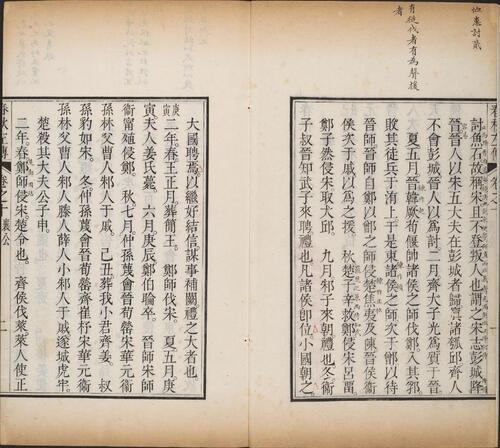 討貳
有從伐者有為聲援
者
討魚石故稱宋且不登叛人也謂之宋志彭城降
晉晉人以宋五大夫在彭城者歸寘諸瓠邱齊人
不會彭城晉人以為討二月齊大子光為質于晉
夏五月晉韓厥荀偃帥諸侯之師伐鄭入其郛
敗其徒兵于洧上于是東諸侯之師次于鄫以待
晉師晉師自鄭以鄫之師侵楚焦夷及陳晉侯衛
侯次于戚以為之援 秋楚子辛救鄭侵宋呂畱
鄭子然侵宋取犬邱 九月邾子來朝禮也冬衛
子叔晉知武子來聘禮也凡諸侯即位小國朝之
大國聘焉以繼好結信謀事補闕禮之大者也
庚寅二年春王正月葬簡王 鄭師伐宋 夏五月庚
寅夫人姜氏薨 六月庚辰鄭伯睔卒 晉師宋師
衛甯殖侵鄭 秋七月仲孫蔑會晉荀罃宋華元衛
孫林父曹人邾人于戚 己丑葬我小君齊姜 叔
孫豹如宋 冬仲孫蔑會晉荀罃齊崔杼宋華元衛
孫林父曹人邾人滕人薛人小邾人于戚遂城虎牢
楚殺其大夫公子申
二年春鄭師侵宋楚令也 齊侯伐萊萊人使正
春秋左傳 卷之十 襄公 二